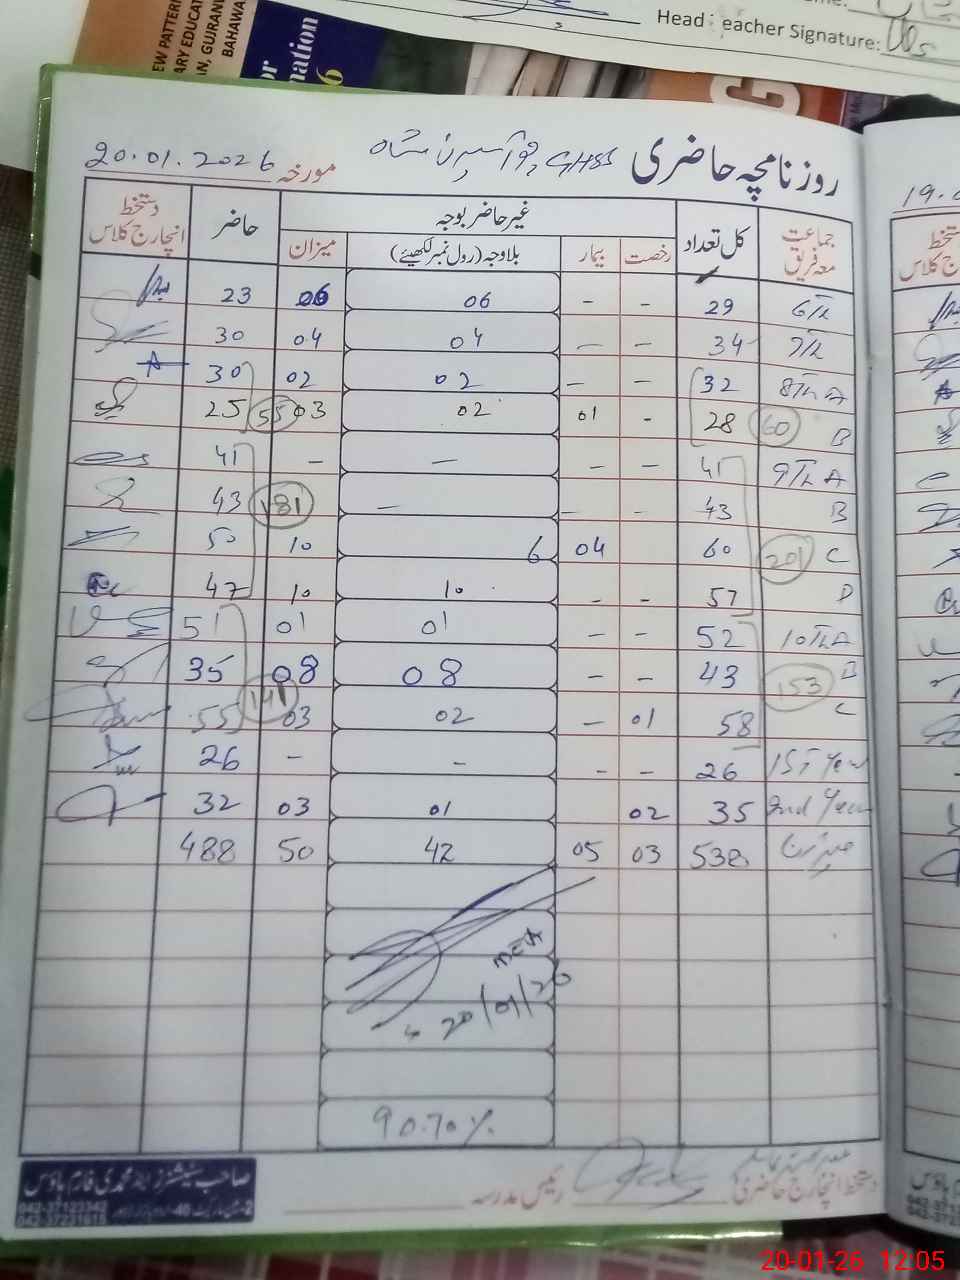 EW PATTERN
ARY EDUCAT
AN, GUJRANW
BAHAWA
or
mation
6
Head Teacher Signature:
روزنامچہ حاضری GHSS
مورخہ 20.01.2026
جماعت معہ فریق | کل تعداد | غیر حاضر بوجہ | حاضر | دستخط انچارج کلاس
رخصت | بیمار | بلاوجہ (رول نمبر لکھیئے) | میزان
6th | 29 | - | - | 06 | 06 | 23
7th | 34 | - | - | 04 | 04 | 30
8th A | 32 | - | - | 02 | 02 | 30
B | 60 | 28 | - | 01 | 02 | 03 | 55 | 25
9th A | 41 | - | - | - | - | 41
B | 43 | - | - | - | 181 | 43
C | 201 | 60 | 04 | 6 | 10 | 50
D | 57 | - | - | 10 | 10 | 47
10th A | 52 | - | - | 01 | 01 | 51
B | 153 | 43 | - | - | 08 | 08 | 35
C | 58 | 01 | - | 02 | 03 | 141 | 55
1st Year | 26 | - | - | - | - | 26
2nd Year | 35 | 02 | 01 | 03 | 32
میزان | 538 | 03 | 05 | 42 | 50 | 488
20/01/26
90.70%
دستخط انچارج حاضری
رئیس مدرسہ
صاحب سٹیشنرز اینڈ محمدی فارم ہاؤس
042-37123342
042-37231815
19.0
20-01-26 12:05